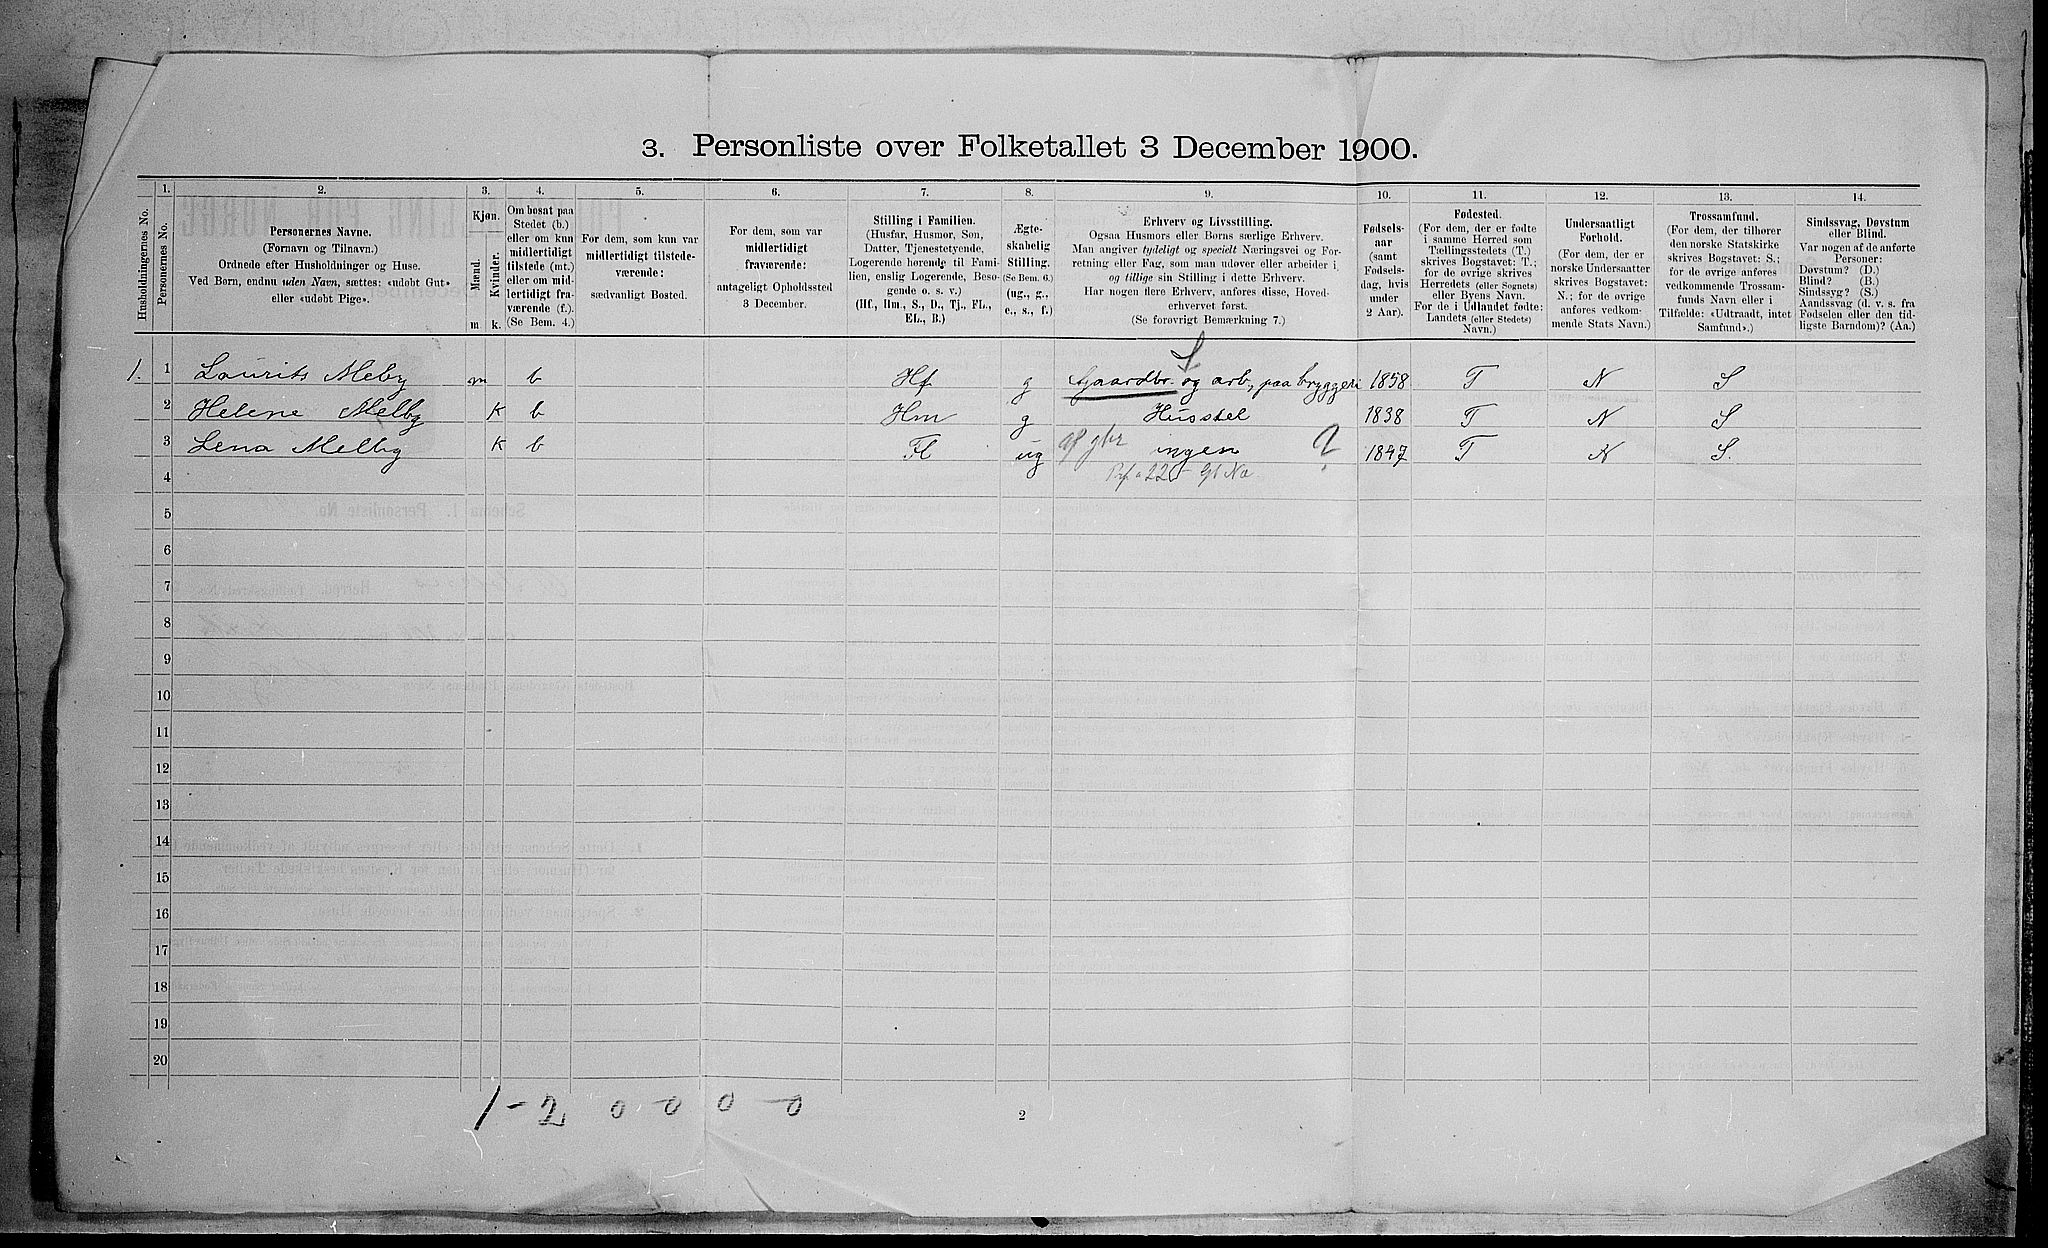 3. Personliste over Folketallet 3 December 1900.
1. 2. 3. 4. 5. 6. 7. 8. 9. 10. 11. 12. 13. 14.
Husholdningernes No.
Personernes No.
Personernes Navne.
(Fornavn og Tilnavn.)
Ordnede efter Husholdninger og Huse.
Ved Børn, endnu uden Navn, sættes: «udøbt Gut»
eller «udøbt Pige».
Kjøn.
Mænd.
Kvinder.
m k.
Om bosat paa
Stedet (b.)
eller om kun
midlertidigt
tilstede (mt.)
eller om mid-
lertidigt fra-
værende (f.).
(Se Bem. 4.)
For dem, som kun var
midlertidigt tilstede-
værende:
sædvanligt Bosted.
For dem, som var
midlertidigt
fraværende:
antageligt Opholdssted
3 December.
Stilling i Familien.
(Husfar, Husmor, Søn,
Datter, Tjenestetyende,
Logerende hørende til Fami-
lien, enslig Logerende, Besø-
gende o. s. v.)
(Hf., Hm., S., D., Tj., FL.,
EL., B.)
Ægte-
skabelig
Stilling.
(Se Bem. 6.)
(ug., g.,
e., s., f.)
Erhverv og Livsstilling.
Ogsaa Husmors eller Børns særlige Erhverv.
Man angiver tydeligt og specielt Næringsvei og For-
retning eller Fag, som man udøver eller arbeider i,
og tillige sin Stilling i dette Erhverv.
Har nogen flere Erhverv, anføres disse, Hoved-
erhvervet først.
(Se forøvrigt Bemærkning 7.)
Fødsels-
aar
(samt
Fødsels-
dag, hvis
under
2 Aar).
Fødested.
(For dem, der er fødte
i samme Herred som
Tællingsstedets (T.)
skrives Bogstavet: T.;
for de øvrige skrives
Herredets (eller Sognets)
eller Byens Navn.
For de i Udlandet fødte:
Landets (eller Stedets)
Navn.)
Undersaatligt
Forhold.
(For dem, der er
norske Undersaatter
skrives Bogstavet:
N.; for de øvrige
anføres vedkom-
mende Stats Navn.)
Trossamfund.
(For dem, der tilhører
den norske Statskirke
skrives Bogstavet: S.;
for de øvrige anføres
vedkommende Trossam-
funds Navn eller i
Tilfælde: «Udtraadt, intet
Samfund».)
Sindssvag, Døvstum
eller Blind.
Var nogen af de anførte
Personer:
Døvstum? (D.)
Blind? (B.)
Sindssyg? (S.)
Aandssvag (d. v. s. fra
Fødselen eller den tid-
ligste Barndom)? (Aa.)
1. 1 Laurits Meby m b Hf g Gaardbr. og arb, paa bryggeri 1858 T N S
2 Helene Melby K b Hm g Husstel 1838 T N S
3 Lena Melby K b Fl ug ingen ? 1847 T N S.
4
5
6
7
8
9
10
11
12
13
14
15
16
17
18
19
20
1 - 2 0 0 0 0
2